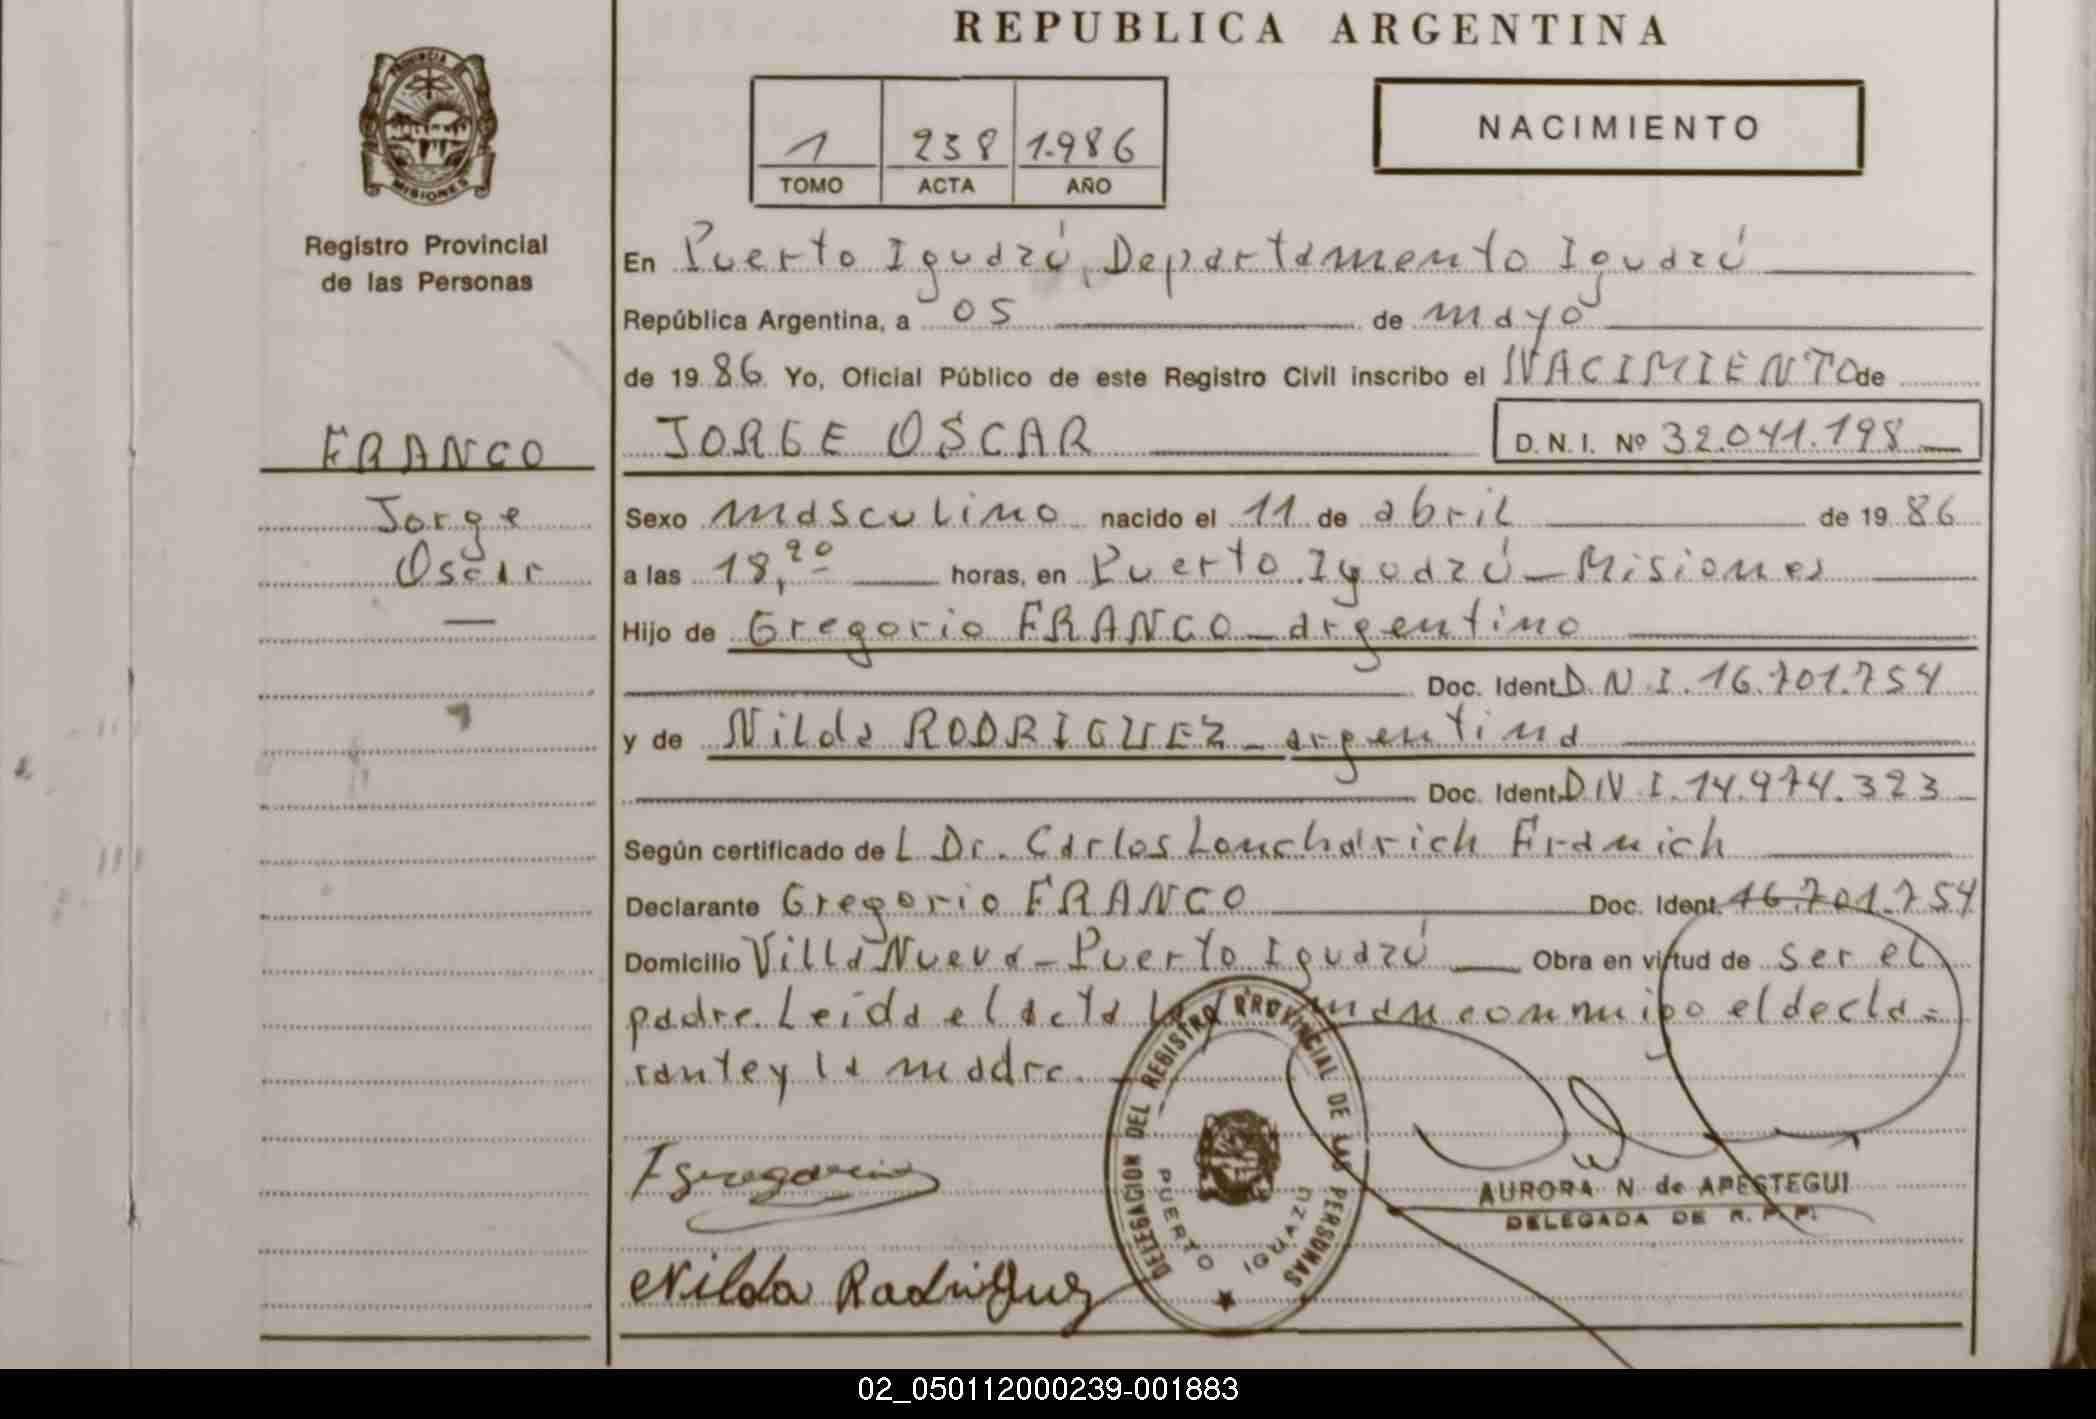 REPUBLICA ARGENTINA
PROVINCIA
MISIONES
Registro Provincial
de las Personas
1 238 1.986
TOMO ACTA AÑO
NACIMIENTO
En Puerto Iguazú, Departamento Iguazú
República Argentina, a 05 de mayo
de 1986 Yo, Oficial Público de este Registro Civil inscribo el NACIMIENTO de
FRANCO
JORGE OSCAR
D.N.I. Nº 32.041.198
Jorge
Oscar
Sexo masculino nacido el 11 de abril de 1986
a las 18,20 horas, en Puerto Iguazú - Misiones
Hijo de Gregorio FRANCO - argentino
Doc. Ident. D.N.I. 16.701.754
y de Nilda RODRIGUEZ - argentina
Doc. Ident. D.N.I. 14.974.323
Según certificado del Dr. Carlos Franich
Declarante Gregorio FRANCO Doc. Ident. 16.701.754
Domicilio Villa Nueva - Puerto Iguazú Obra en virtud de ser el
padre. Leída el acta la firman conmigo el decla=
rante y la madre.
DELEGACION DEL REGISTRO PROVINCIAL DE LAS PERSONAS
PUERTO IGUAZU
AURORA N. de APESTEGUI
DELEGADA DE R. P. P.
Nilda Rodriguez
02_050112000239-001883